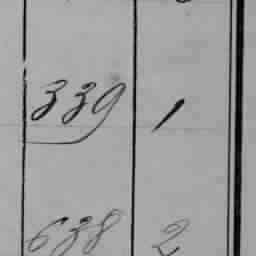 339 1
638 2